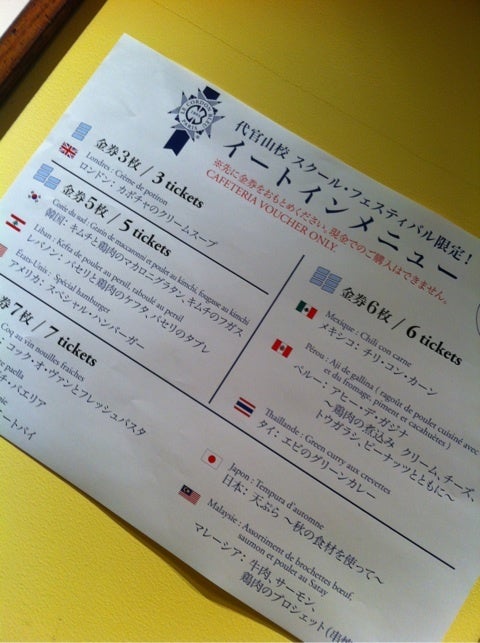 LE CORDON BLEU
PARIS
代官山校 スクール・フェスティバル限定！
イートインメニュー
※先に金券をおもとめください。現金でのご購入はできません。
CAFETERIA VOUCHER ONLY.
金券3枚 / 3 tickets
Londres : Crème de potiron
ロンドン：カボチャのクリームスープ
金券5枚 / 5 tickets
Corée du sud : Gratin de maccaroni et poulet au kimchi fougasse au kimchi
韓国：キムチと鶏肉のマカロニグラタン、キムチのフガス
Liban : Kefta de poulet au persil, taboulé au persil
レバノン：パセリと鶏肉のケフタ、パセリのタブレ
Etats-Unis : Spécial hamburger
アメリカ：スペシャル・ハンバーガー
券7枚 / 7 tickets
Coq au vin nouilles fraîches
コック・オ・ヴァンとフレッシュパスタ
paella
パエリア
ートパイ
金券6枚 / 6 tickets
Mexique : Chili con carne
メキシコ：チリ・コン・カーン
Pérou : Aji de gallina ( ragoût de poulet cuisiné avec
et du fromage, piment et cacahuètes )
ペルー：アヒー・デ・ガジナ
〜鶏肉の煮込み クリーム、チーズ、
トウガラシ、ピーナッツとともに〜
Thaïlande : Green curry aux crevettes
タイ：エビのグリーンカレー
Japon : Tempura d'automne
日本：天ぷら 〜秋の食材を使って〜
Malaysie : Assortiment de brochettes bœuf,
saumon et poulet au Satay
マレーシア：牛肉、サーモン、
鶏肉のブロシェット（串焼